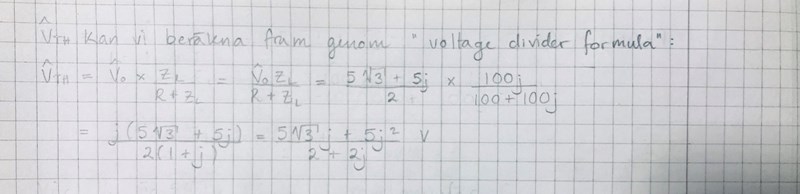 V̂TH kan vi beräkna fram genom "voltage divider formula":
V̂TH = V̂o × ZL / R + ZL = V̂o ZL / R + ZL = 5√3 + 5j / 2 × 100j / 100 + 100j
= j(5√3 + 5j) / 2(1 + j) = 5√3 j + 5j² / 2 + 2j V